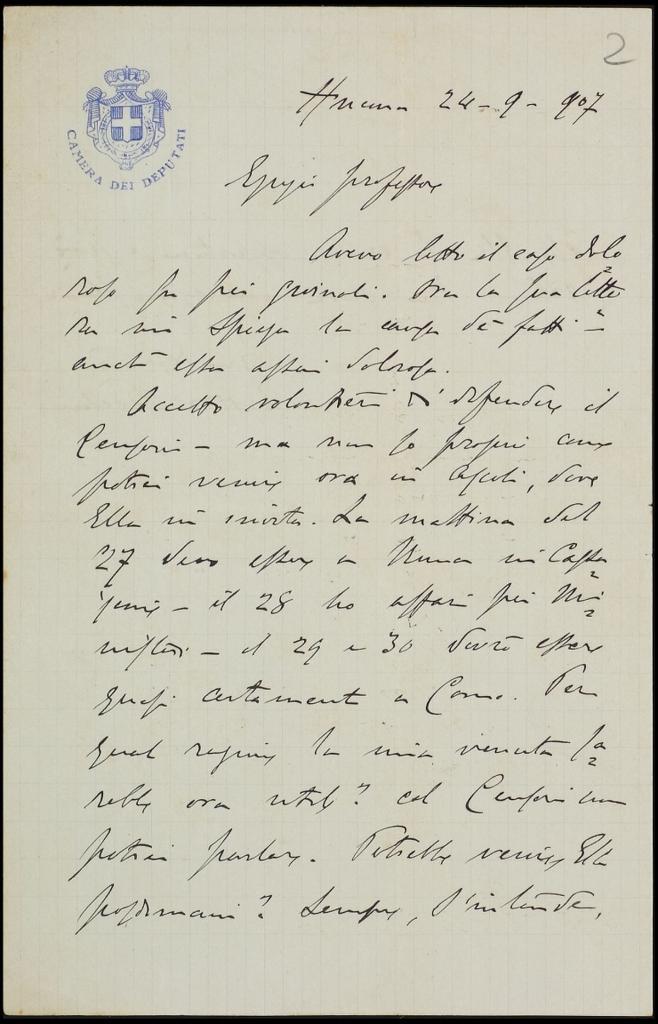 2
CAMERA DEI DEPUTATI
24-9-907
Egregio professore
Avevo letto il caso dolo
roso su pei giornali. Ora la sua lette
ra mi spiega la causa de' fatti -
anch'essa assai dolorosa.
Accetto volentieri di difendere il
Censori - ma non so proprio come
potrei venire ora in Ascoli, dove
Ella mi invita. La mattina del
27 devo essere a Roma in Cassa
zione - il 28 ho affari pei Mi
nisteri - il 29 e 30 dovrò essere
quasi certamente a Como. Per
qual ragione la mia venuta sa
rebbe ora utile? col Censori non
potrei parlare. Potrebbe venire Ella
posdomani? Sempre, s'intende,